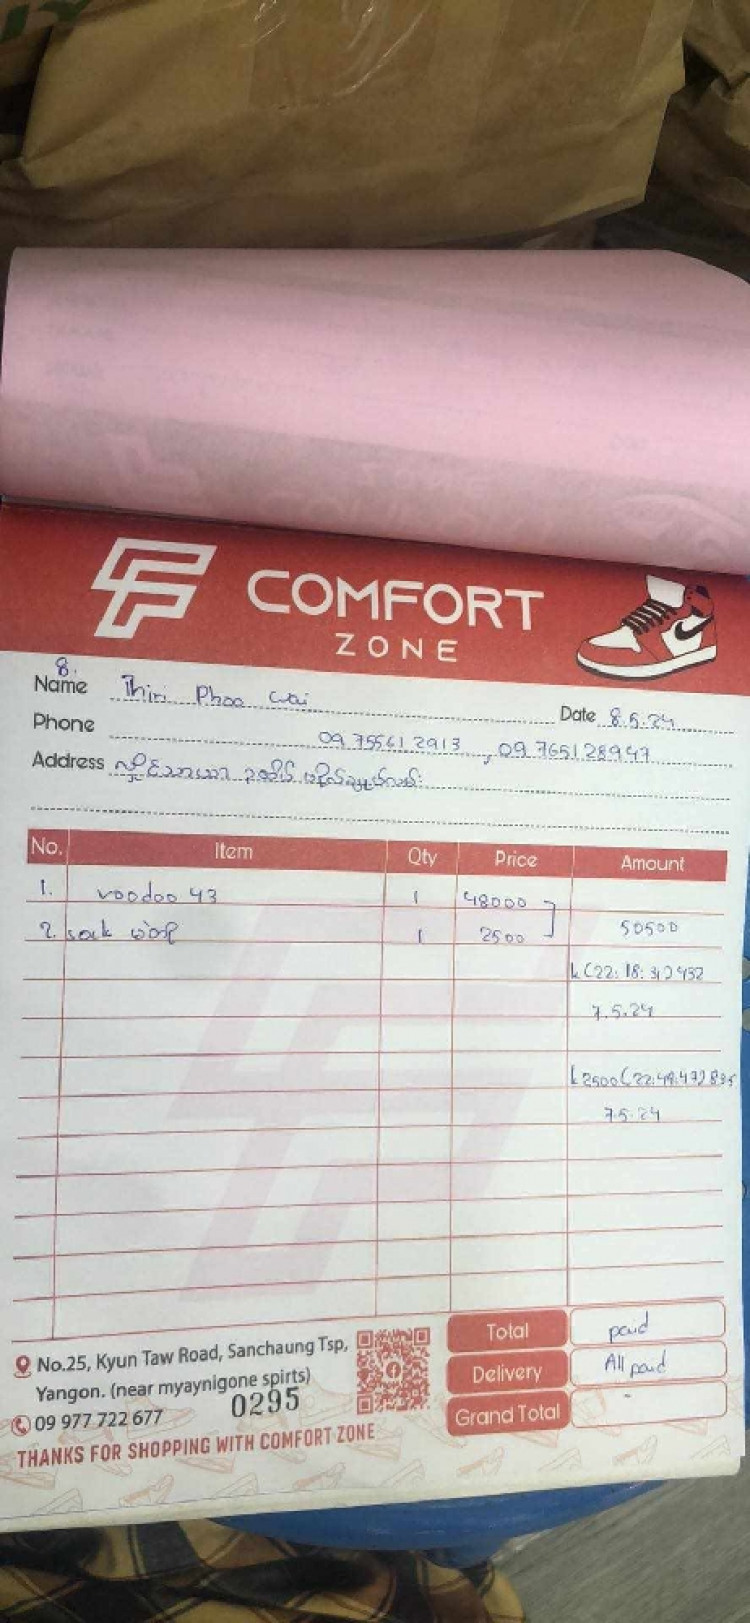 COMFORT
ZONE
8.
Name Thiri Phoo Wai
Date 8.5.24
Phone 09 755612913, 09 765128947
Address
No. Item Qty Price Amount
1. voodoo 43 1 48000
2. sock 1 2500 50500
k(22:18:31)432
7.5.24
k2500(22:49:47)835
7.5.24
Total paid
Delivery All paid
Grand Total -
No.25, Kyun Taw Road, Sanchaung Tsp,
Yangon. (near myaynigone spirts)
09 977 722 677
0295
THANKS FOR SHOPPING WITH COMFORT ZONE